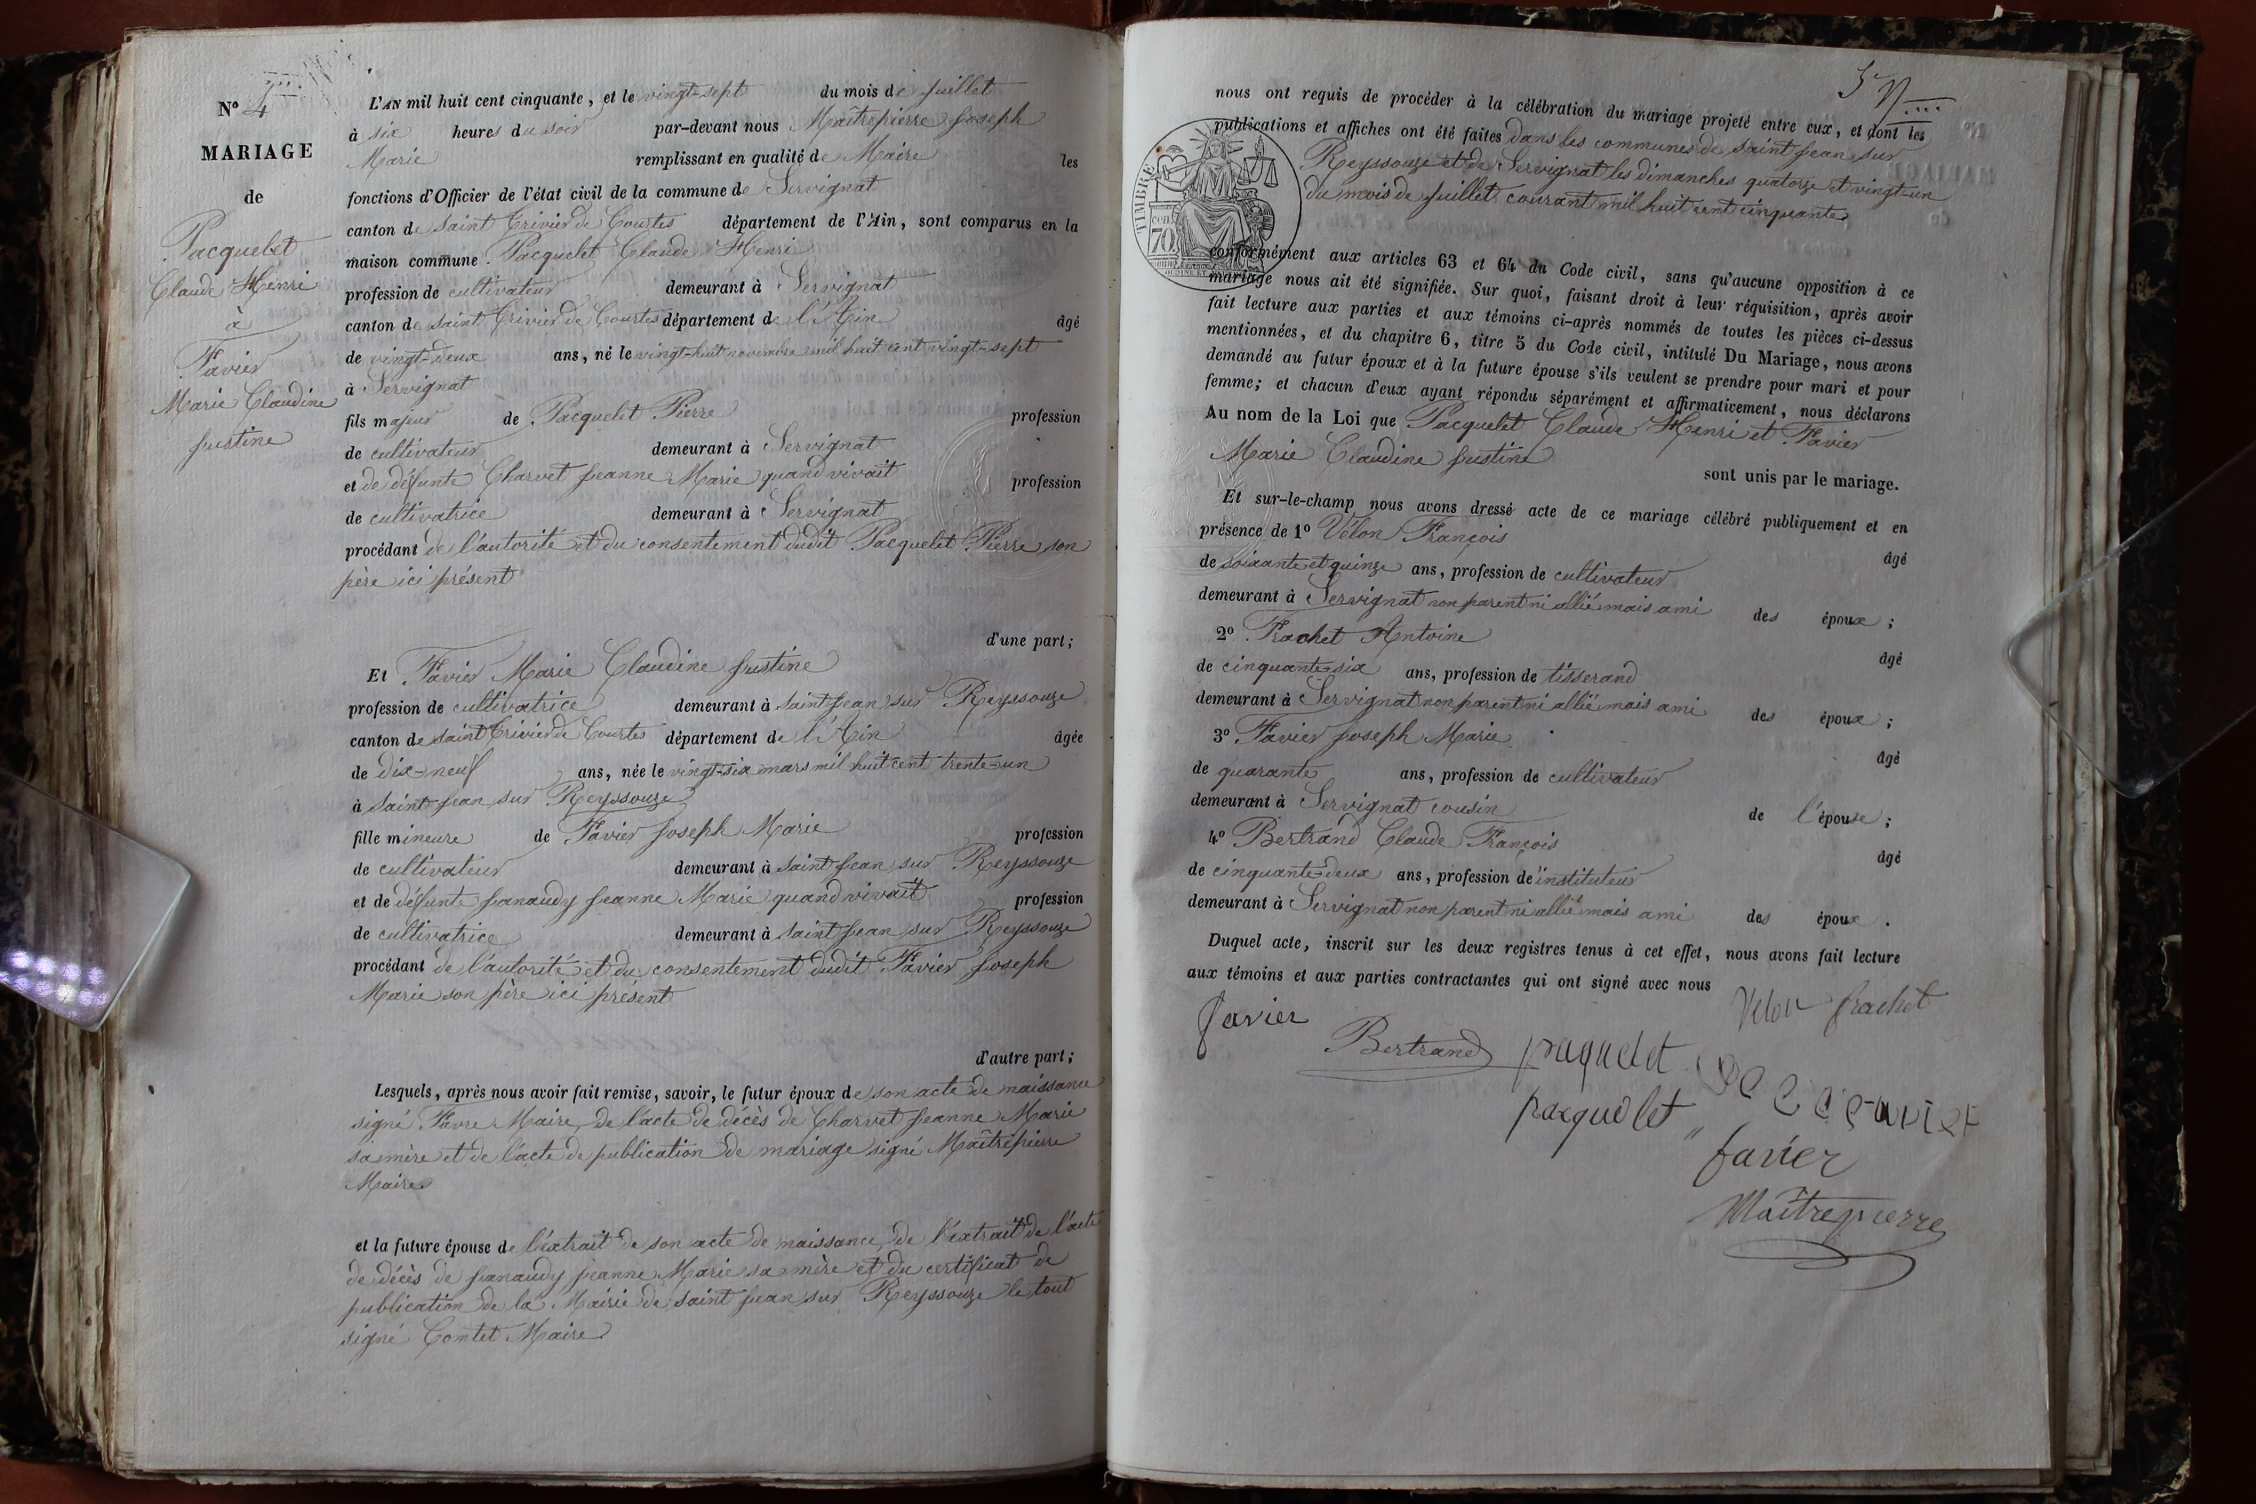 N° 4
MARIAGE
de
Pacquelet
Claude Henri
à
Favier
Marie Claudine
Justine
L'AN mil huit cent cinquante, et le vingt-sept du mois de Juillet
à six heures du soir par-devant nous Maîtrepierre Joseph
Marie remplissant en qualité de Maire les
fonctions d'Officier de l'état civil de la commune de Servignat
canton de saint Trivier de Courtes département de l'Ain, sont comparus en la
maison commune Pacquelet Claude Henri
profession de cultivateur demeurant à Servignat
canton de saint Trivier de Courtes département de l'Ain âgé
de vingt-deux ans, né le vingt-huit novembre mil huit cent vingt-sept
à Servignat
fils majeur de Pacquelet Pierre profession
de cultivateur demeurant à Servignat
et de défunte Charvet Jeanne Marie quand vivait profession
de cultivatrice demeurant à Servignat
procédant de l'autorité et du consentement dudit Pacquelet Pierre son
père ici présent
d'une part;
Et Favier Marie Claudine Justine
profession de cultivatrice demeurant à saint Jean sur Reyssouze
canton de saint Trivier de Courtes département de l'Ain âgée
de dix-neuf ans, née le vingt-six mars mil huit cent trente-un
à saint Jean sur Reyssouze
fille mineure de Favier Joseph Marie profession
de cultivateur demeurant à saint Jean sur Reyssouze
et de défunte Janaudy Jeanne Marie quand vivait profession
de cultivatrice demeurant à saint Jean sur Reyssouze
procédant de l'autorité et du consentement dudit Favier Joseph
Marie son père ici présent
d'autre part;
Lesquels, après nous avoir fait remise, savoir, le futur époux de son acte de naissance
signé Favre Maire, de l'acte de décès de Charvet Jeanne Marie
sa mère et de l'acte de publication de mariage signé Maîtrepierre
Maire
et la future épouse de l'extrait de son acte de naissance, de l'extrait de l'acte
de décès de Janaudy Jeanne Marie sa mère et du certificat de
publication de la Mairie de saint Jean sur Reyssouze le tout
signé Comtet Maire
nous ont requis de procéder à la célébration du mariage projeté entre eux, et dont les
publications et affiches ont été faites dans les communes de saint Jean sur
Reyssouze et de Servignat les dimanches quatorze et vingt-un
du mois de Juillet courant mil huit cent cinquante
TIMBRE
cen.
70
conformément aux articles 63 et 64 du Code civil, sans qu'aucune opposition à ce
mariage nous ait été signifiée. Sur quoi, faisant droit à leur réquisition, après avoir
fait lecture aux parties et aux témoins ci-après nommés de toutes les pièces ci-dessus
mentionnées, et du chapitre 6, titre 5 du Code civil, intitulé Du Mariage, nous avons
demandé au futur époux et à la future épouse s'ils veulent se prendre pour mari et pour
femme; et chacun d'eux ayant répondu séparément et affirmativement, nous déclarons
Au nom de la Loi que Pacquelet Claude Henri et Favier
Marie Claudine Justine
sont unis par le mariage.
Et sur-le-champ nous avons dressé acte de ce mariage célébré publiquement et en
présence de 1° Vélon François âgé
de soixante et quinze ans, profession de cultivateur
demeurant à Servignat non parent ni allié mais ami des époux;
2° Frachet Antoine âgé
de cinquante-six ans, profession de tisserand
demeurant à Servignat non parent ni allié mais ami des époux;
3° Favier Joseph Marie âgé
de quarante ans, profession de cultivateur
demeurant à Servignat cousin de l'épouse;
4° Bertrand Claude François âgé
de cinquante-deux ans, profession de instituteur
demeurant à Servignat non parent ni allié mais ami des époux.
Duquel acte, inscrit sur les deux registres tenus à cet effet, nous avons fait lecture
aux témoins et aux parties contractantes qui ont signé avec nous
Velon frachet
favier
Bertrand paquelet
pacquelet
favier
Maîtrepierre